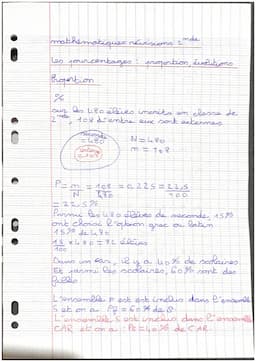 mathématiques révisions 2nde
Les pourcentages : proportion, évolutions
Proportion
%
Sur les 480 élèves inscrits en classe de
2nde, 108 d'entre eux sont externes
seconde
= 480
N = 480
externe
= 108
n = 108
P = n/N = 108/480 = 0,225 = 22,5/100
= 22,5 %
Parmi les 480 élèves de seconde, 15 %
ont choisi l'option grec ou latin
15 % de 480
15/100 x 480 = 72 élèves
Dans un car, il y a 40 % de scolaires
Et parmi les scolaires, 60 % sont des
filles
L'ensemble F est est inclus dans l'ensemble
S et on a PF = 60 % de S
L'ensemble S est inclus dans l'ensemble
CAR et on a : PS = 40 % de CAR